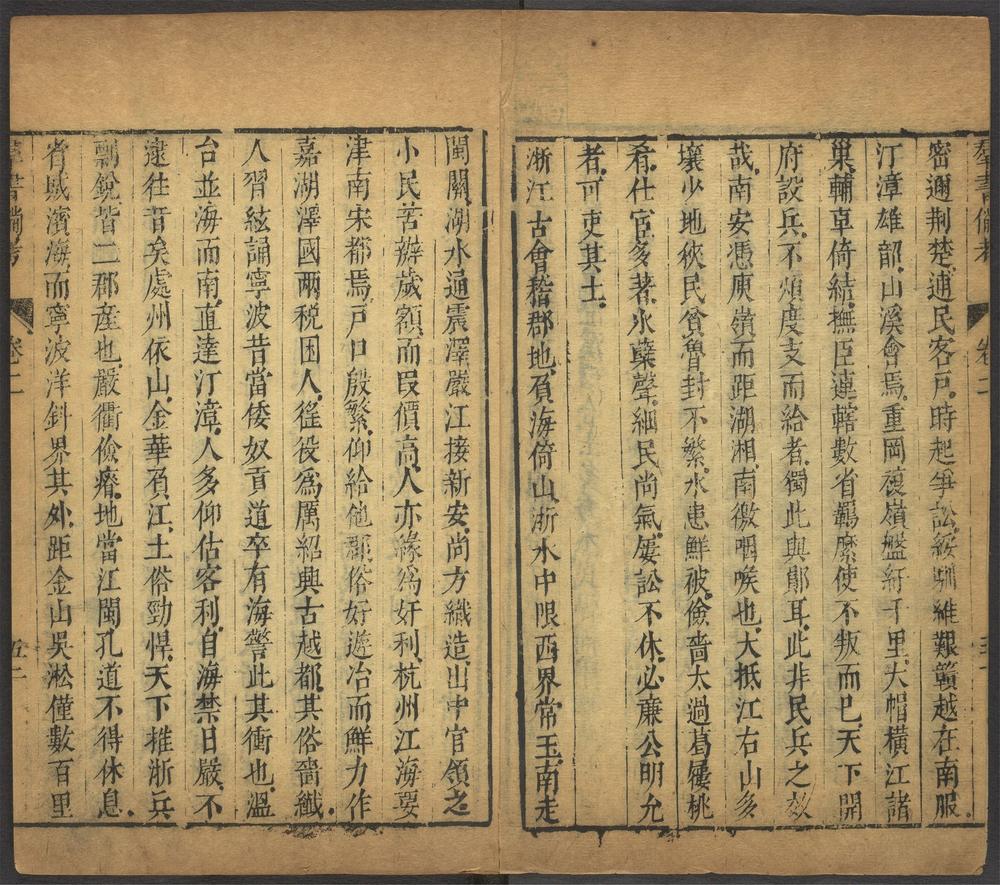 羣書備考 卷二
密邇荆楚逋民客戸時起爭訟綏馴維艱贛越在南服
汀漳雄韶山溪會焉重岡複嶺盤紆千里大帽橫江諸
巢輔車倚結撫臣連轄數省羈縻使不叛而巳天下開
府設兵不煩度支而給者獨此與鄖耳此非民兵之效
哉南安憑庾嶺而距湖湘南徼咽喉也大抵江右山多
壤少地狹民貧魯封不繁水患鮮被儉嗇太過葛屨桃
肴仕宦多著氷蘖聲細民尚氣屢訟不休必廉公明允
者可吏其土
浙江古會稽郡地負海倚山浙水中限西界常玉南走
閩關湖水通震澤嚴江接新安尚方織造山中官領之
小民苦辦歲額而叚價高人亦緣爲奸利杭州江海要
津南宋都焉戸口殷繁仰給他郡俗好遊冶而鮮力作
嘉湖澤國兩税困人徭役爲厲紹興古越都其俗嗇纎
人習絃誦寧波昔當倭奴貢道卒有海警此其衝也溫
台並海而南直達汀漳人多仰估客利自海禁日嚴不
逮往昔矣處州依山金華負江土俗勁悍天下推浙兵
剽銳皆二郡産也嚴衢儉瘠地當江閩孔道不得休息
者咸濱海而寧波洋斜界其外距金山吳淞僅數百里
羣書備考 卷二 五二